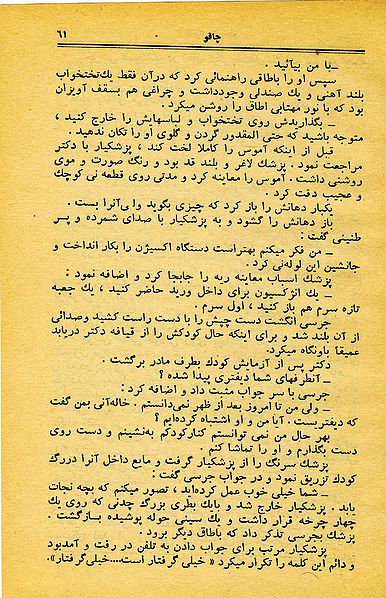 چاقو
۶۱
ــ با من بیائید .
سپس او را باطاقی راهنمائی کرد که درآن فقط یك‌تختخواب
بلند آهنی و یك صندلی وجودداشت و چراغی هم بسقف آویزان
بود که با نور مهتابی اطاق را روشن میکرد .
ــ بگذاریدش روی تختخواب و لباسهایش را خارج کنید ،
متوجه باشید که حتی المقدور گردن و گلوی او را تکان ندهید .
قبل از اینکه آموس را کاملا لخت کند ، پزشکیار با دکتر
مراجعت نمود . پزشك لاغر و بلند قد بود و رنگ صورت و موی
روشنی داشت . آموس را معاینه کرد و مدتی روی قطعه نی کوچك
و عجیب دقت کرد .
یکبار دهانش را باز کرد که چیزی بگوید ولی‌آنرا بست .
باز دهانش را گشود و به پزشکیار با صدای شمرده و پر
طنینی گفت :
ــ من فکر میکنم بهتراست دستگاه اکسیژن را بکار انداخت و
جانشین این لوله‌نی کرد.
پزشك اسباب معاینه ریه را جابجا کرد و اضافه نمود :
ــ یك انژکسیون برای داخل ورید حاضر کنید ، یك جعبه
تازه سرم هم باز کنید ، اول سرم .
جرسی انگشت دست چپش را با دست راست کشید وصدائی
از آن بلند شد و برای اینکه حال کودکش را از قیافه دکتر دریابد
عمیقاً باونگاه میکرد.
دکتر پس از آزمایش کودك بطرف مادر برگشت .
ــ آنطرفهای شما دیفتری پیدا شده ؟
جرسی با سر جواب مثبت داد و اضافه کرد :
ــ ولی من تا امروز بعد از ظهر نمی‌دانستم . خاله‌آنی بمن گفت
که دیفتریست . آیا من و او اشتباه کرده‌ایم ؟
بهر حال من نمی توانستم کنارکودکم به‌نشینم و دست روی
دست بگذارم و او را تماشا کنم .
پزشك سرنگ را از پزشکیار گرفت و مایع داخل آنرا دررگ
کودك تزریق نمود و در جواب جرسی گفت :
ــ شما خیلی خوب عمل کرده‌اید ، تصور میکنم که بچه نجات
یابد . پزشکیار خارج شد و بایك بطری بزرگ چدنی که روی یك
چهار چرخه قرار داشت و یك سینی حوله پوشیده بازگشت .
پزشك بجرسی تذکر داد که باطاق دیگر برود .
پزشکیار مرتب برای جواب دادن به تلفن در رفت و آمدبود
و دائم این کلمه را تکرار میکرد « خیلی گرفتار است....خیلی‌گرفتار».